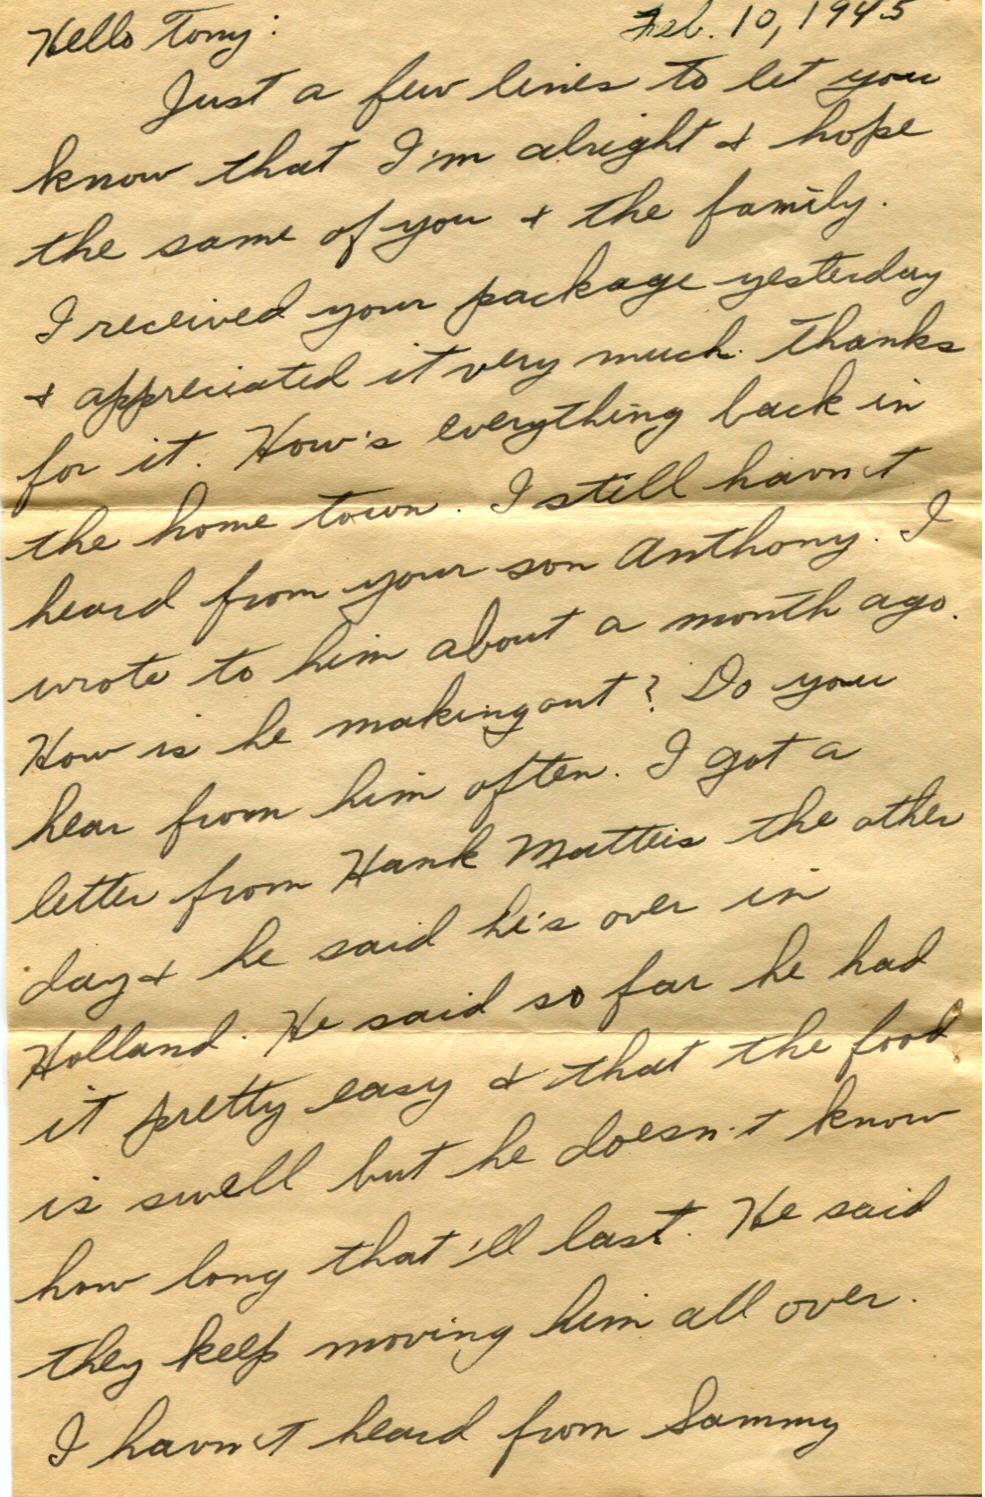 Feb. 10, 1945
Hello Tony:
Just a few lines to let you
know that I'm alright & hope
the same of you & the family.
I received your package yesterday
& appreciated it very much. Thanks
for it. How's everything back in
the home town. I still havn't
heard from your son Anthony. I
wrote to him about a month ago.
How is he making out? Do you
hear from him often. I got a
letter from Hank Matteis the other
day & he said he's over in
Holland. He said so far he had
it pretty easy & that the food
is swell but he doesn't know
how long that'll last. He said
they keep moving him all over.
I havn't heard from Sammy